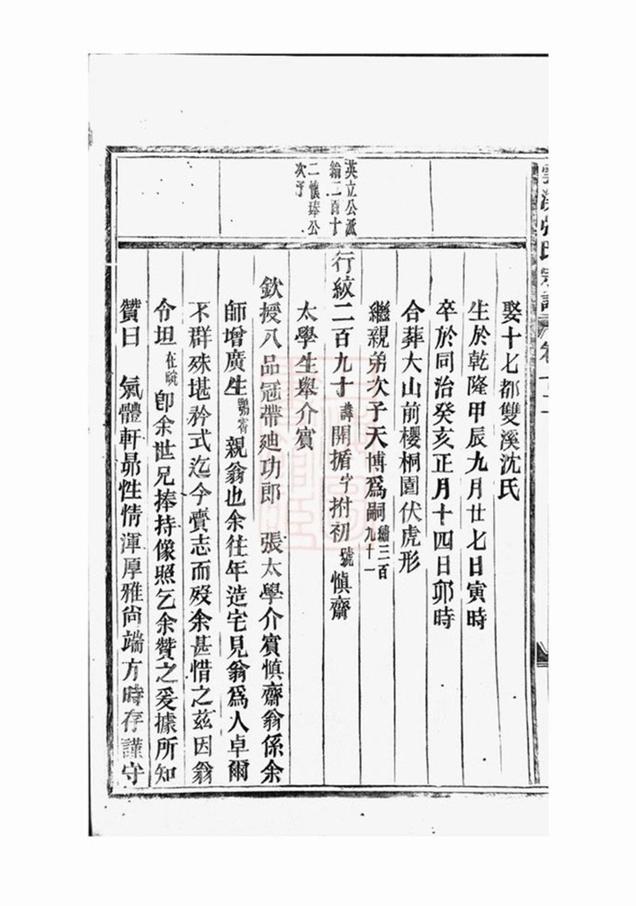 娶十七都雙溪沈氏
生於乾隆甲辰九月廿七日寅時
卒於同治癸亥正月十四日卯時
合葬大山前櫻桐園伏虎形
繼親弟次子天博爲嗣 繡三百九十一
英立公派
綸二百十
二懷琫公
次子
行紋二百九十 諱開揗字拊初 號慎齋
太學生舉介賓
欽授八品冠帶廸功郎 張太學介賓慎齋翁係余
師增廣生 親翁也余往年造宅見翁爲人卓爾
不群殊堪矜式迄今賫志而殁余甚惜之茲因翁
令坦 在皖 卽余世兄捧持像照乞余贊之爰據所知
贊曰 氣體軒昻性情渾厚雅尙端方時存謹守